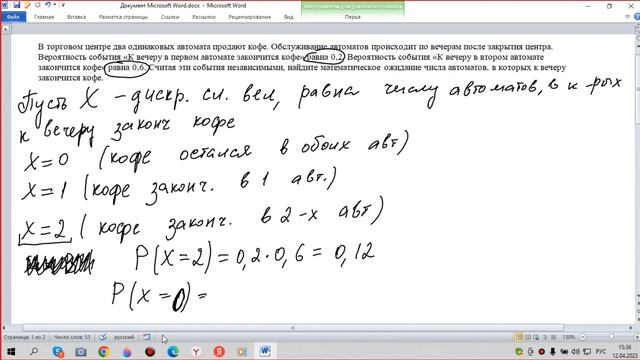 Документ Microsoft Word.docx - Microsoft Word
Инструменты для рукописного ввода
Перья
В торговом центре два одинаковых автомата продают кофе. Обслуживание автоматов происходит по вечерам после закрытия центра.
Вероятность события «К вечеру в первом автомате закончится кофе» равна 0,2. Вероятность события «К вечеру в втором автомате
закончится кофе» равна 0,6. Считая эти события независимыми, найдите математическое ожидание числа автоматов, в которых к вечеру
закончится кофе.
Пусть X – дискр. сл. вел, равна числу автоматов, в к-рых
к вечеру законч кофе
X=0 (кофе остался в обоих авт)
X=1 (кофе законч. в 1 авт.)
X=2 (кофе законч. в 2-х авт)
P(X=2)=0,2·0,6=0,12
P(X=0)=
Страница: 1 из 2
Число слов: 53
русский
100%
РУС
15:36
12.04.2023